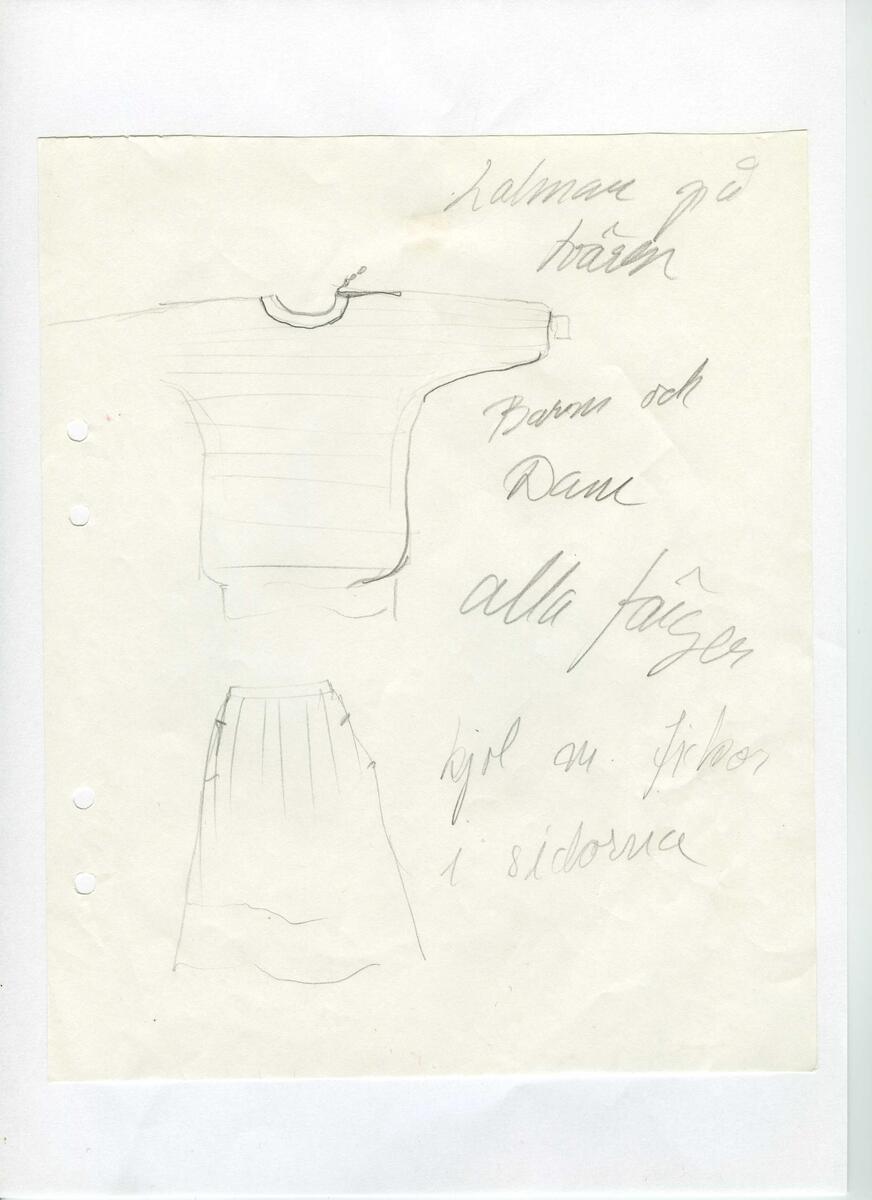 på
tvären
Barn och
Dam
alla färger
kjol m. fickor
i sidorna